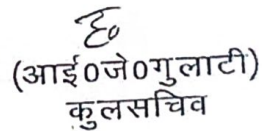 ह०
(आई०जे०गुलाटी)
कुलसचिव